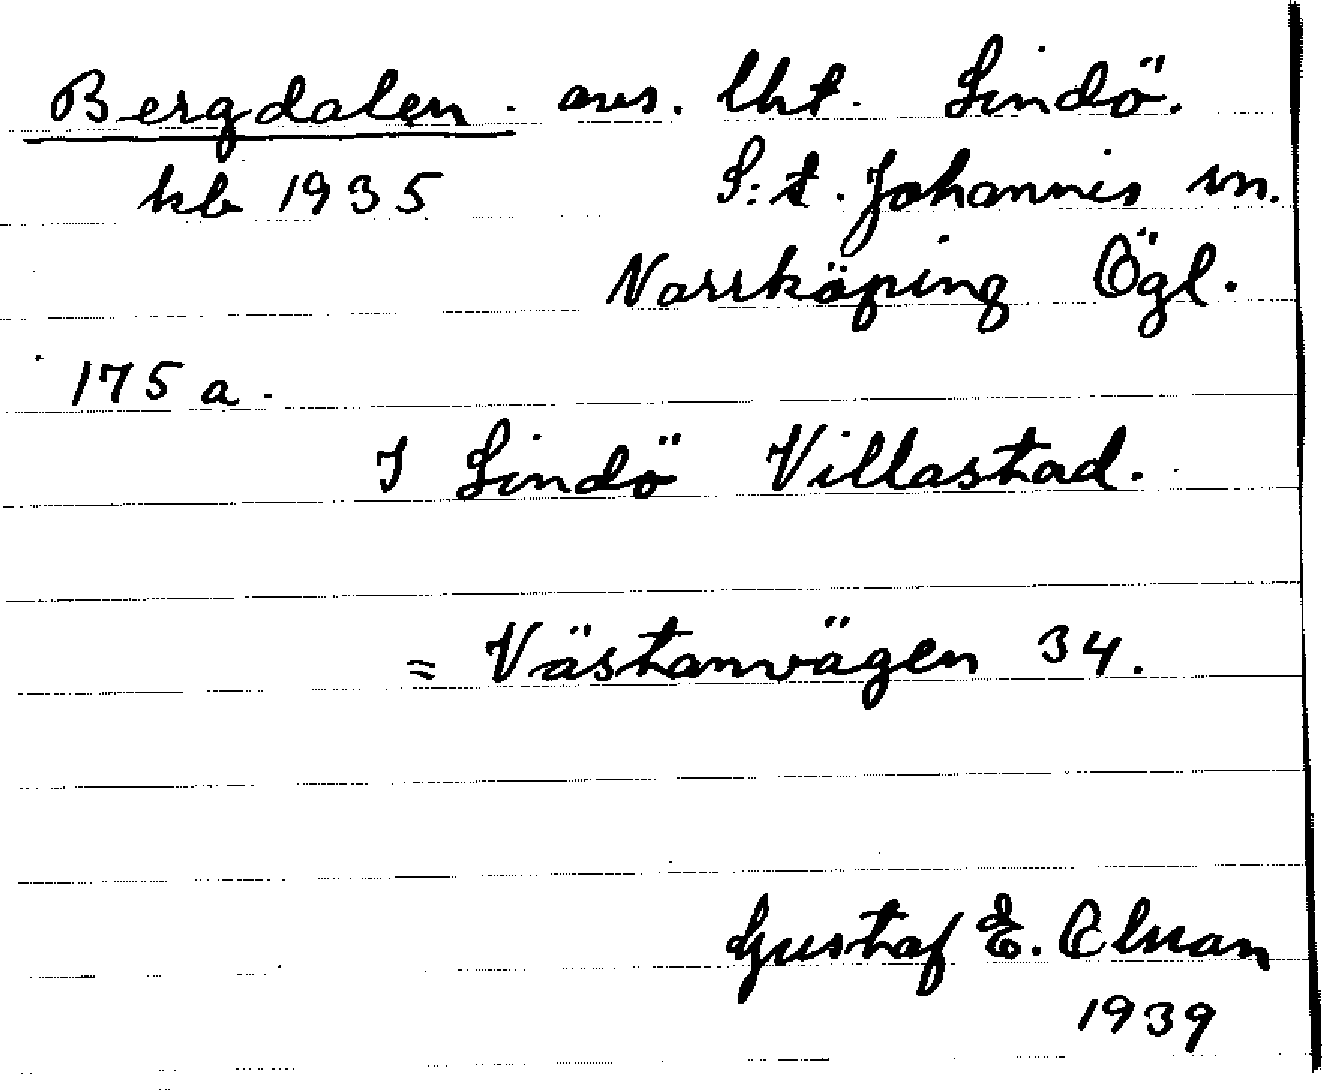 Bergdalen. avs. lht. Lindö.
kb 1935 S:t. Johannis sn.
Norrköping Ögl.
175 a.
I Lindö Villastad.
= Västanvägen 34.
Gustaf E.
1939